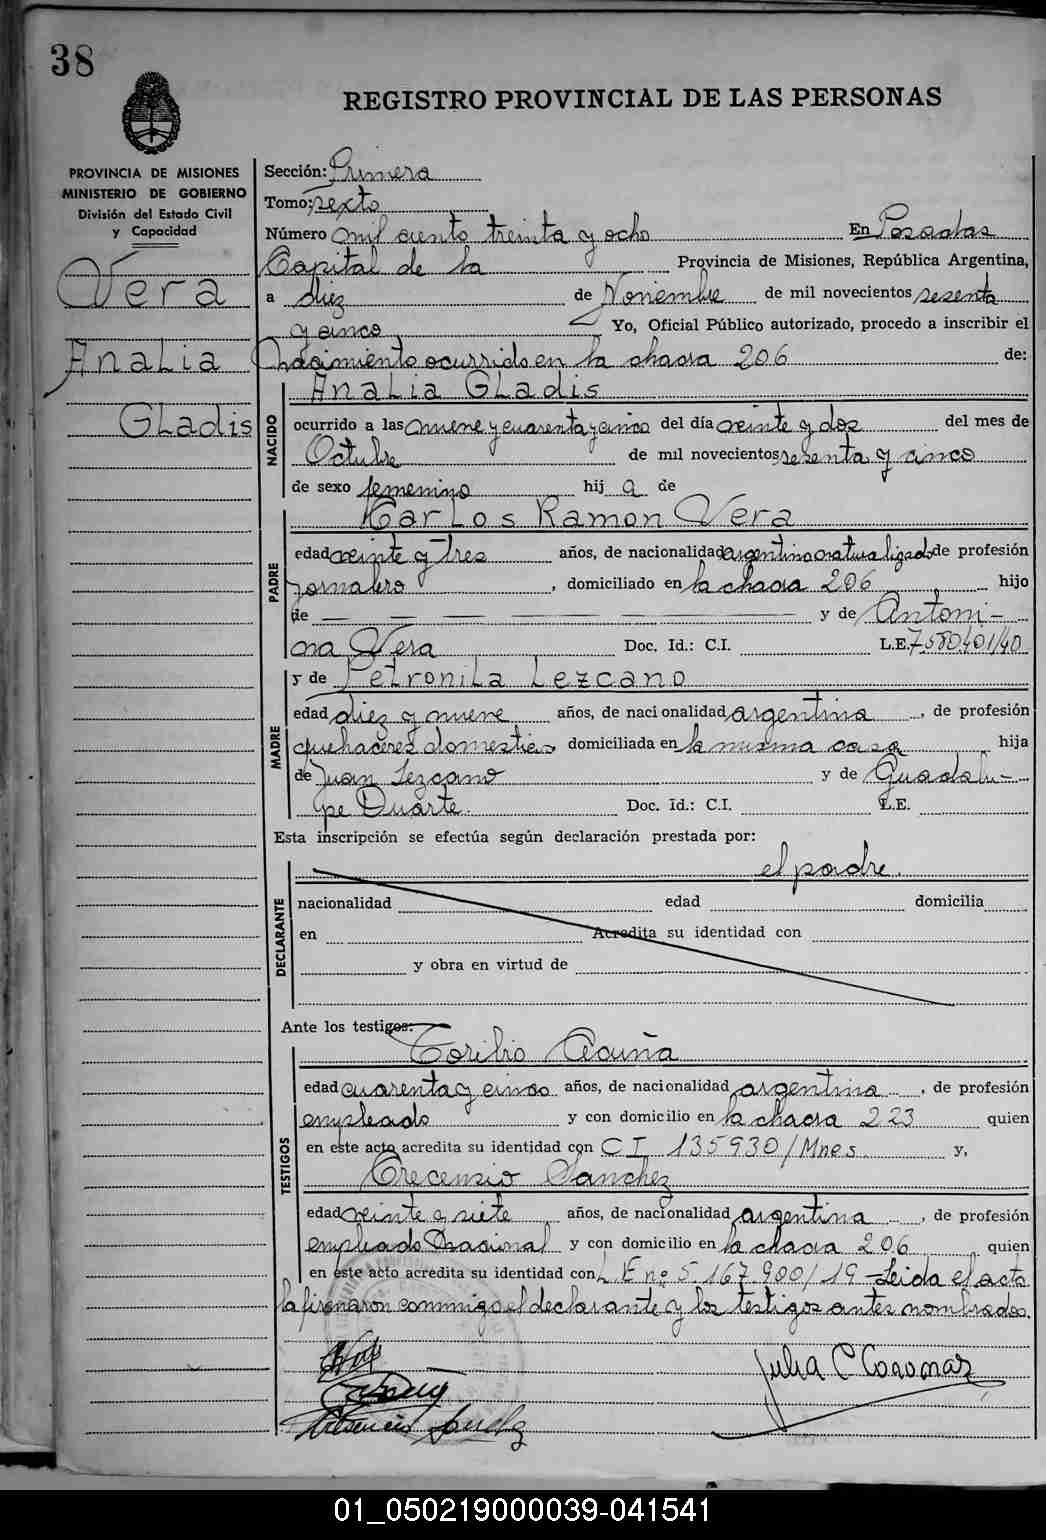 38
REGISTRO PROVINCIAL DE LAS PERSONAS
PROVINCIA DE MISIONES
MINISTERIO DE GOBIERNO
División del Estado Civil
y Capacidad
Vera
Analia
Gladis
Sección: Primera
Tomo: sexto
Número mil ciento treinta y ocho En Posadas
Capital de la Provincia de Misiones, República Argentina,
a diez de Noviembre de mil novecientos sesenta
y cinco Yo, Oficial Público autorizado, procedo a inscribir el
nacimiento ocurrido en la chacra 206 de:
NACIDO
Analia Gladis
ocurrido a las nueve y cuarenta y cinco del día veinte y dos del mes de
Octubre de mil novecientos sesenta y cinco
de sexo femenino hij a de
PADRE
Carlos Ramon Vera
edad veinte y tres años, de nacionalidad argentino naturalizado de profesión
jornalero, domiciliado en la chacra 206 hijo
de — — — — — — y de Antoni-
na Vera Doc. Id.: C.I. L.E. 7.580.401/40
MADRE
y de Petronila Lezcano
edad diez y nueve años, de nacionalidad argentina, de profesión
quehaceres domesticos domiciliada en la misma casa hija
de Juan Lezcano y de Guadalu-
pe Duarte. Doc. Id.: C.I. L.E.
Esta inscripción se efectúa según declaración prestada por:
el padre.
DECLARANTE
nacionalidad edad domicilia
en Acredita su identidad con
y obra en virtud de
Ante los testigos:
Toribio Acuña
TESTIGOS
edad cuarenta y cinco años, de nacionalidad argentina, de profesión
empleado y con domicilio en la chacra 223 quien
en este acto acredita su identidad con C I 135930/Mnes. y,
Crecencio Sanchez
edad veinte y siete años, de nacionalidad argentina, de profesión
empleado Nacional y con domicilio en la chacra 206 quien
en este acto acredita su identidad con L.E nº 5.167.900/19 - Leida el acta
la firmaron conmigo el declarante y los testigos antes nombrados.
Julia C Coronar
01_050219000039-041541